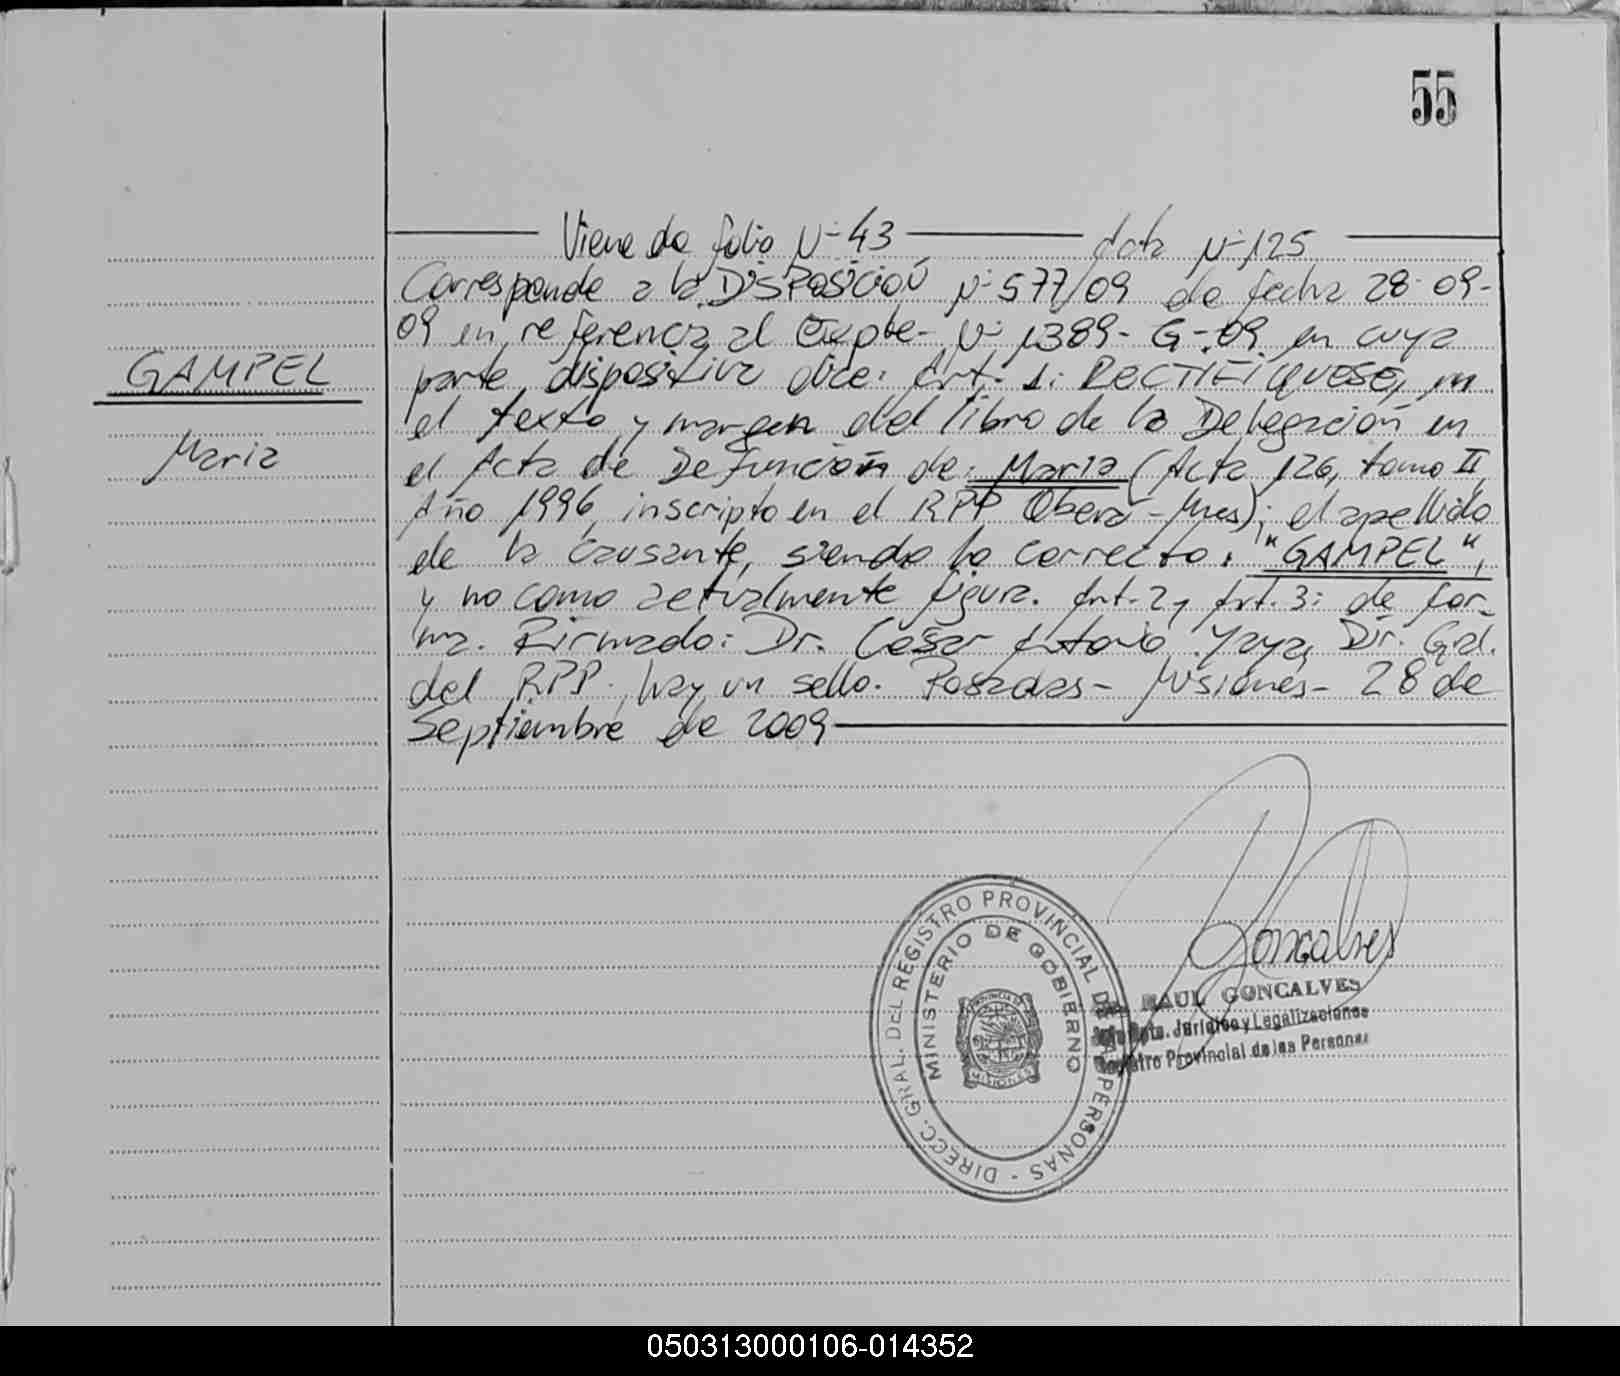 55
Viene de folio Nº 43 Acta Nº 125
Corresponde a la DISPOSICIÓN Nº 577/09 de fecha 28-09-
09 en referencia al Expte- Nº 1389- G-09 en cuya
parte dispositiva dice: Art- 1: RECTIFIQUESE, en
el texto y margen del libro de la Delegación en
el Acta de Defunción de: Maria (Acta 126, tomo II,
Año 1996, inscripto en el RPP Obera - Mnes); el apellido
de la causante, siendo lo correcto: "GAMPEL",
y no como actualmente figura. Art. 2 y Art. 3: de for-
ma. Firmado: Dr. Cesar Antonio Yaya, Dir. Gral.
del RPP. hay un sello. Posadas- Misiones- 28 de
Septiembre de 2009
GAMPEL
Maria
Goncalves
RAUL GONCALVES
Jefe Dpto. Jurídico y Legalizaciones
Registro Provincial de las Personas
DIRECC. GRAL. DEL REGISTRO PROVINCIAL DE LAS PERSONAS -
MINISTERIO DE GOBIERNO
PROVINCIA DE
MISIONES
050313000106-014352